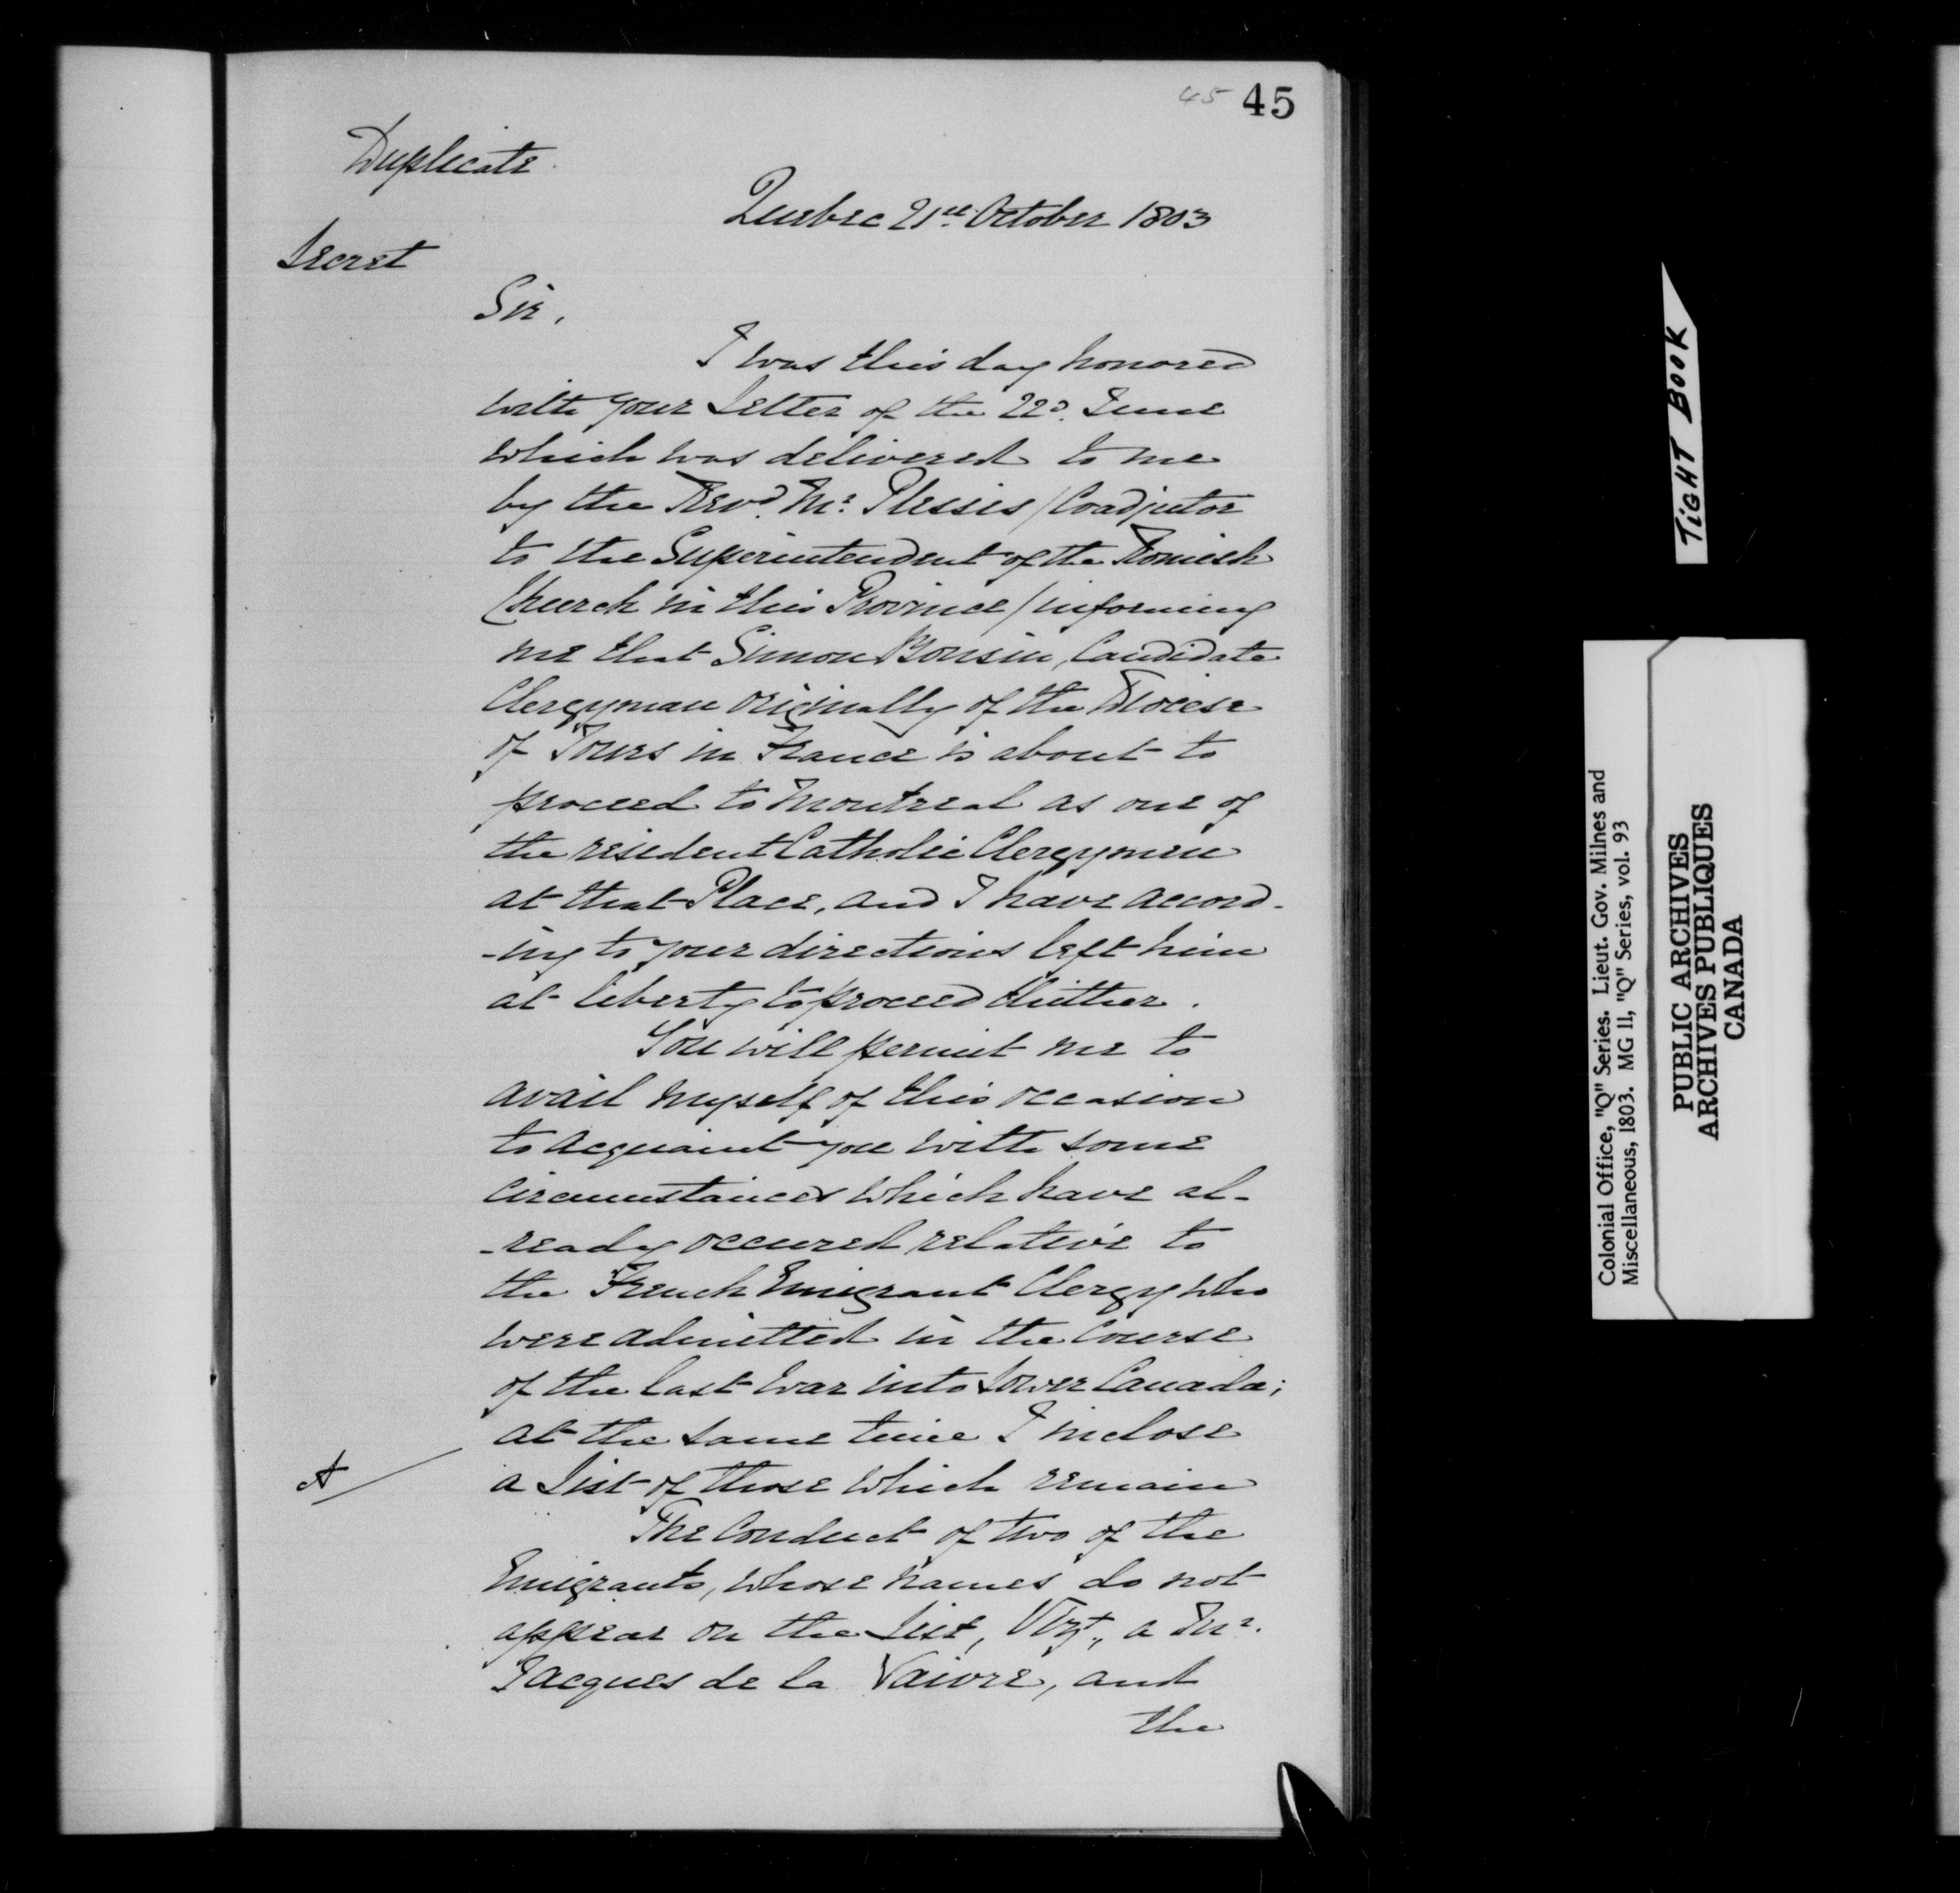 45 45
Duplicate.
Quebec 21st. October 1803
Secret
Sir,
I was this day honored
with your Letter of the 22d. June
which was delivered to me
by the Revd. Mr. Plessis /Coadjutor
to the Superintendent of the Romish
Church in this Province/ informing
me that Simon Boussin, Candidate
Clergyman originally of the Diocese
of Tours in France is about to
proceed to Montreal as one of
the resident Catholic Clergymen
at that Place, and I have accord-
-ing to your directions left him
at liberty to proceed thither.
You will permit me to
avail myself of this occasion
to acquaint you with some
circumstances which have al-
-ready occured relative to
the French Emigrant Clergy who
were admitted in the Course
of the last War into Lower Canada;
at the same time I inclose
A/ a List of those which remain
The Conduct of two of the
Emigrants, whose names do not
appear on the List, Vizt., a Mr.
Jacques de la Vaivre, and
the
TIGHT BOOK
Colonial Office, "Q" Series. Lieut. Gov. Milnes and
Miscellaneous, 1803. MG 11, "Q" Series, vol. 93
PUBLIC ARCHIVES
ARCHIVES PUBLIQUES
CANADA